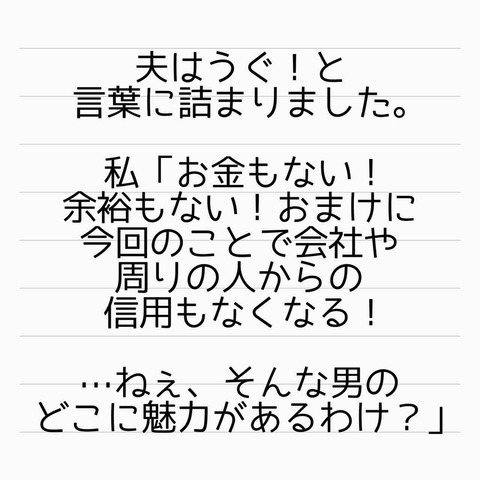 夫はうぐ！と
言葉に詰まりました。
私「お金もない！
余裕もない！おまけに
今回のことで会社や
周りの人からの
信用もなくなる！
…ねぇ、そんな男の
どこに魅力があるわけ？」